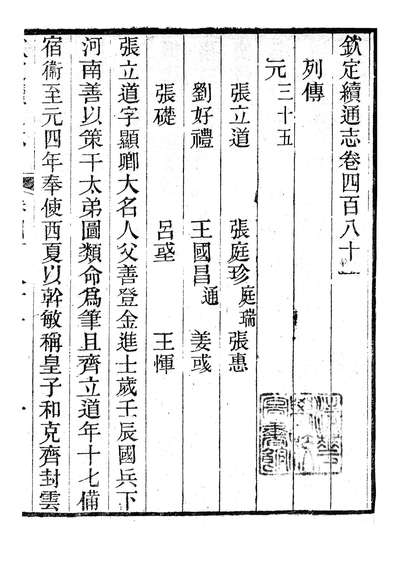 欽定續通志卷四百八十一
列傳
元三十五
張立道 張庭珍庭瑞 張惠
劉好禮 王國昌通 姜彧
張礎 呂𡐨 王惲
張立道字顯卿大名人父善登金進士歲壬辰國兵下
河南善以策干太弟圖類命爲筆且齊立道年十七備
宿衛至元四年奉使西夏以幹敏稱皇子和克齊封雲